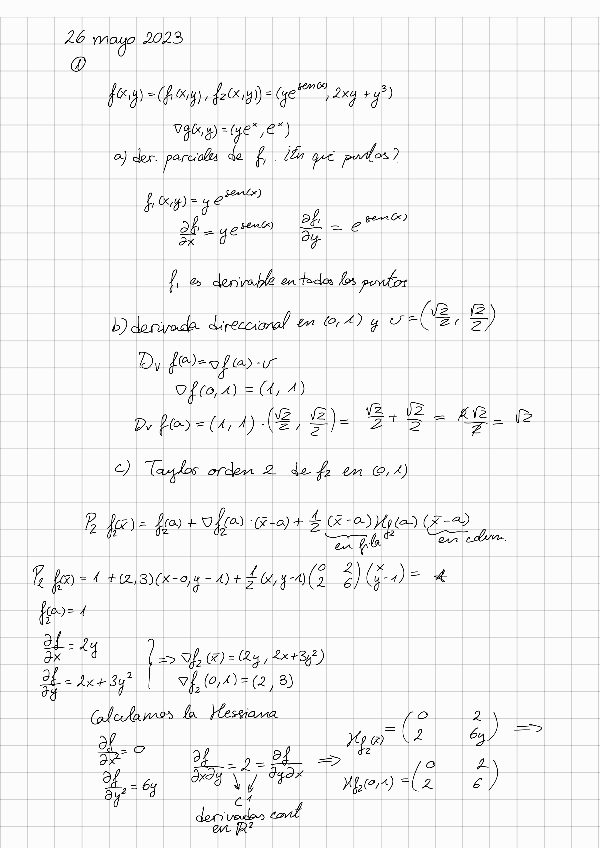 26 mayo 2023
①
f(x,y) = (f₁(x,y), f₂(x,y)) = (ye^{sen(x)}, 2xy + y³)
∇g(x,y) = (ye^x, e^x)
a) der. parciales de f₁. ¿En qué puntos?
f₁(x,y) = y e^{sen(x)}
∂f₁/∂x = y e^{sen(x)}   ∂f₁/∂y = e^{sen(x)}
f₁ es derivable en todos los puntos
b) derivada direccional en (0,1) y v = (√2/2, √2/2)
Dv f(a) = ∇f(a)·v
∇f(0,1) = (1, 1)
Dv f(a) = (1, 1)·(√2/2, √2/2) = √2/2 + √2/2 = 2√2/2 = √2
c) Taylor orden 2 de f₂ en (0,1)
P₂ f₂(x̄) = f₂(a) + ∇f₂(a)·(x̄-a) + 1/2 (x̄-a) Hf₂(a) (x̄-a)
en fila   en colum.
P₂ f₂(x̄) = 1 + (2,3)(x-0, y-1) + 1/2 (x, y-1) (0 2 / 2 6) (x / y-1) =
f₂(a) = 1
∂f/∂x = 2y
∂f/∂y = 2x + 3y² } ⇒ ∇f₂(x̄) = (2y, 2x+3y²)
∇f₂(0,1) = (2, 3)
Calculamos la Hessiana
∂f/∂x² = 0   ∂f/∂x∂y = 2 = ∂f/∂y∂x ⇒ Hf₂(x̄) = (0 2 / 2 6y) ⇒
∂f/∂y² = 6y   Hf₂(0,1) = (0 2 / 2 6)
C1
derivadas cont
en ℝ²